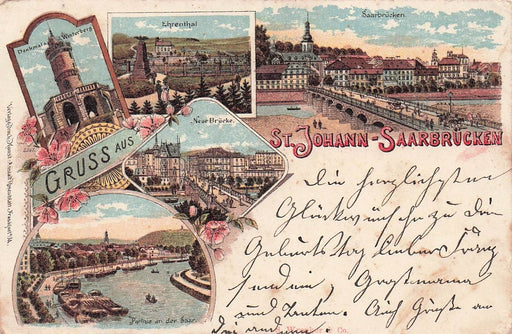 Denkmal a. d. Winterberg
Ehrenthal
Saarbrücken.
Neue Brücke.
GRUSS AUS
ST. JOHANN-SAARBRÜCKEN
Partie an der Saar.
Die herzlichsten
Glückwünsche zu Die
Geburtstag lieber Franz
senden, Grossmama
und Tanten. Auch Grüße an
Co.